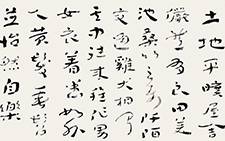 土地平曠屋舍
儼然有良田美
池桑竹之屬阡陌
交通雞犬相聞
其中往來種作男
女衣著悉如外
人黃髮垂髫
並怡然自樂